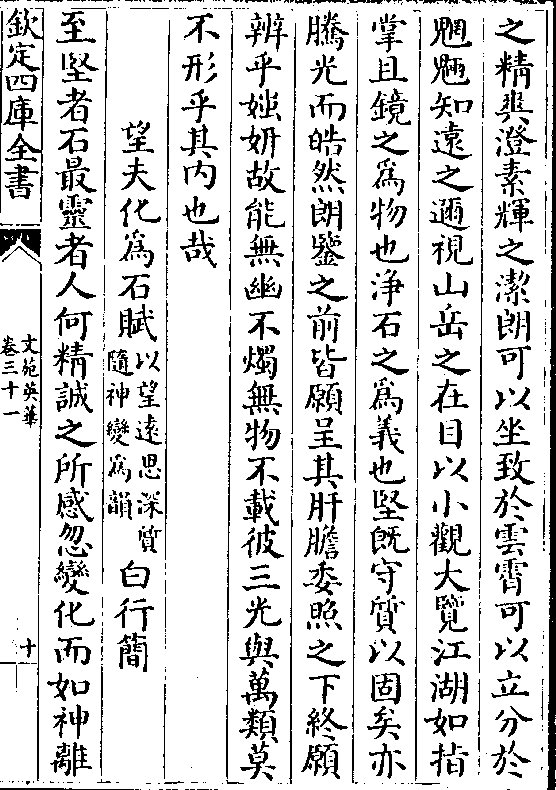 之精爽澄素輝之潔朗可以坐致於雲霄可以立分於
魍魎知遠之邇視山岳之在目以小觀大覽江湖如指
掌且鏡之為物也淨石之為義也堅既守質以固矣亦
騰光而皓然朗鑒之前皆願呈其肝膽委照之下終願
辨乎媸妍故能無幽不燭無物不載彼三光與萬類莫
不形乎其内也哉
望夫化為石賦以望遠思深質隨神變為韻 白行簡
至堅者石最靈者人何精誠之所感忽變化而如神離
欽定四庫全書
文苑英華
卷三十一
十